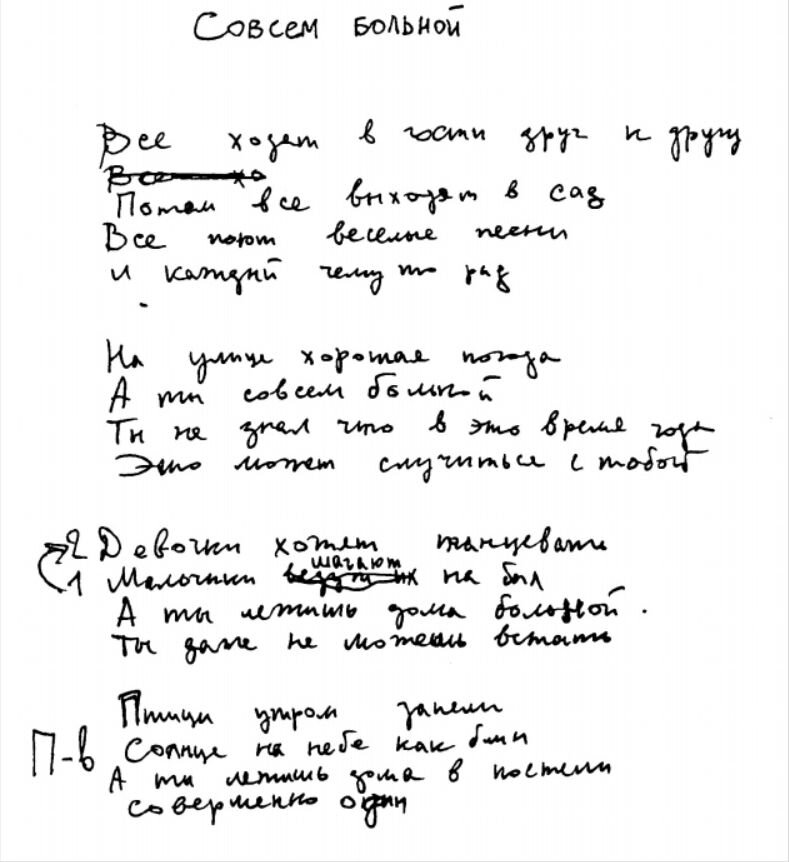 Совсем больной
Все ходят в гости друг к другу
Все хо
Потом все выходят в сад
Все поют веселые песни
и каждый чему то рад
На улице хорошая погода
А ты совсем больной
Ты не знал что в это время года
Это может случиться с тобой
2 Девочки хотят танцевать
шагают
1 Мальчики на бал
А ты лежишь дома больной.
Ты даже не можешь встать
Птицы утром запели
П-в Солнце на небе как блин
А ты лежишь дома в постели
совершенно один